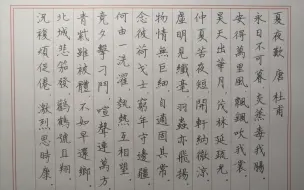 夏夜歎 唐 杜甫
永日不可暮 炎蒸毒我腸
安得萬里風 飄颻吹我裳
昊天出華月 茂林延疏光
仲夏苦夜短 開軒納微涼
虛明見纖毫 羽蟲亦飛揚
物情無巨細 自適固其常
念彼荷戈士 窮年守邊疆
何由一洗濯 執熱互相望
竟夕擊刁斗 喧聲連萬方
青紫雖被體 不如早還鄉
北城悲笳發 鸛鶴號且翔
況復煩促倦 激烈思時康